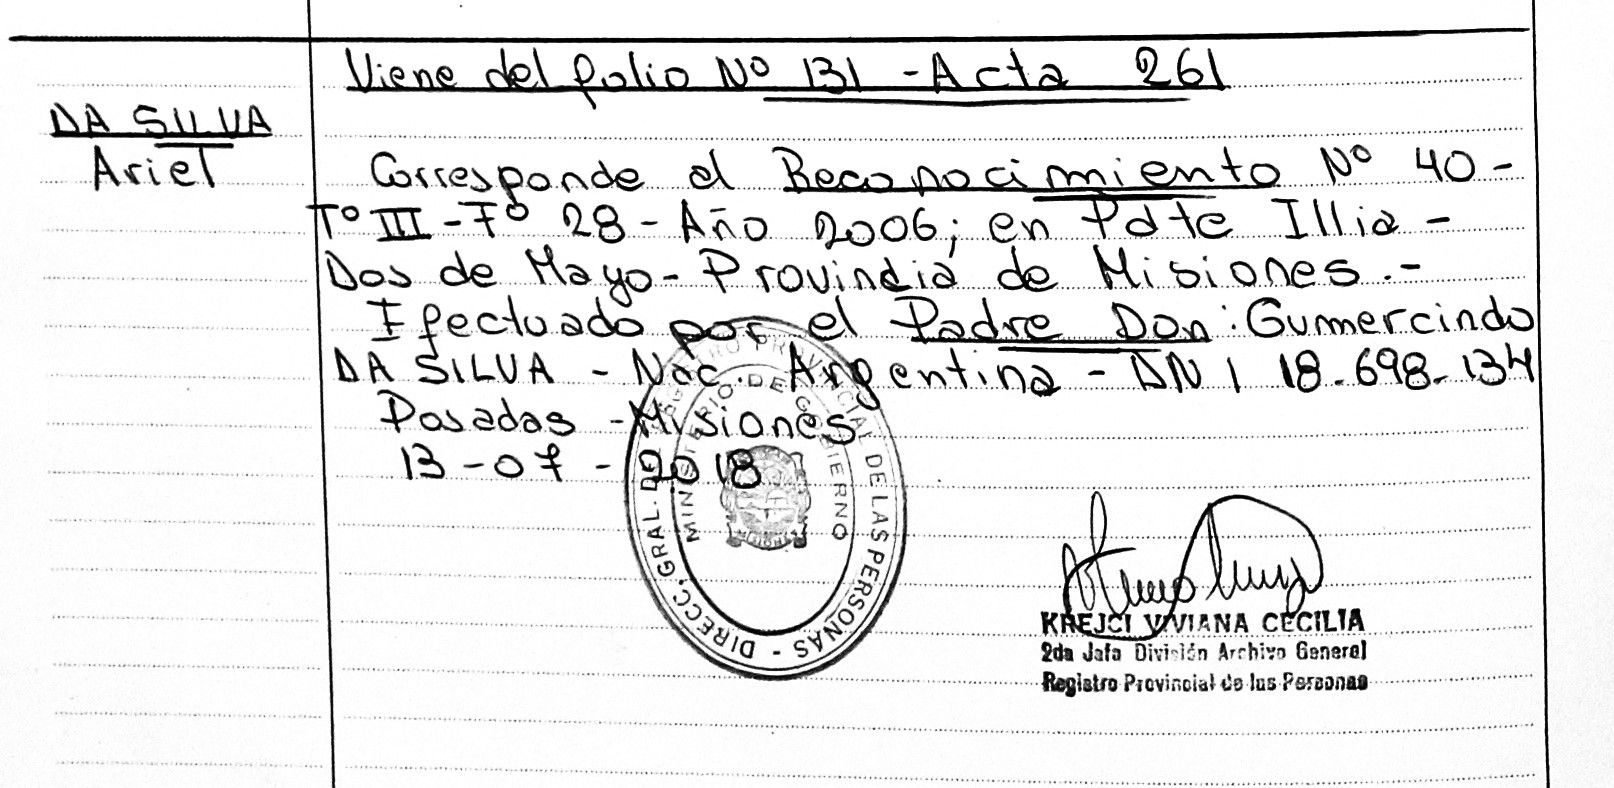 Viene del folio Nº 131 - Acta 261
DA SILVA
Ariel
Corresponde al Reconocimiento Nº 40 -
Tº III - Fº 28 - Año 2006; en Pdte Illia -
Dos de Mayo - Provindia de Misiones.-
Efectuado por el Padre Don: Gumercindo
DA SILVA - Nac. Argentina - DNI 18.698.134
Posadas - Misiones
13-07-2018
DIRECC. GRAL. DEL REGISTRO PROVINCIAL DE LAS PERSONAS -
MINISTERIO DE GOBIERNO
MISIONES
KREJCI VIVIANA CECILIA
2da Jefa División Archivo General
Registro Provincial de las Personas